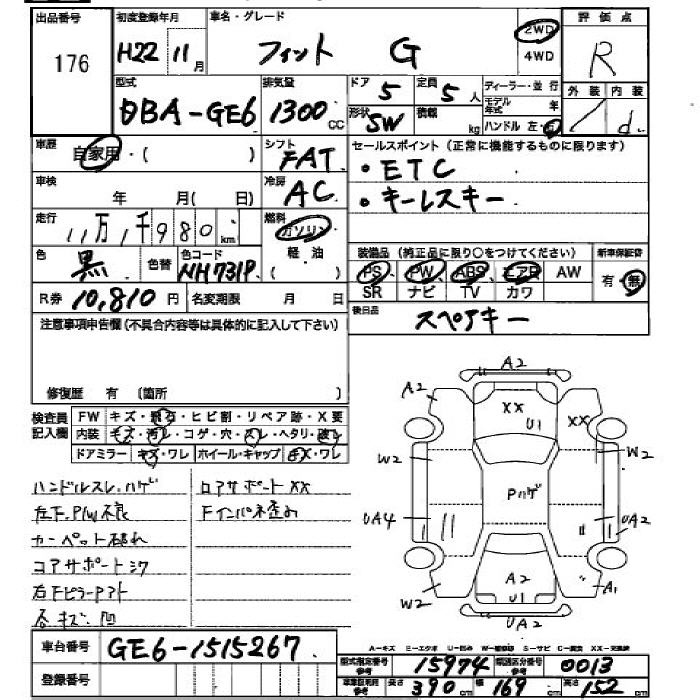 出品番号 初度登録年月 車名・グレード 2WD 評価点
176 H22 11月 フィット G 4WD R
型式 排気量 ドア 定員 ディーラー・並行 外装 内装
DBA-GE6 1300cc 5 5人 モデル年式 年 / d
形状 SW 積載 kg ハンドル 左・右
車歴 自家用・( ) シフト FAT セールスポイント(正常に機能するものに限ります)
車検 年 月( 日) 冷房 AC ・ETC
・キーレスキー
走行 11万1千980km 燃料 ガソリン
軽・油
( )
色 黒 色替 色コード NH731P 装備品(純正品に限り○をつけてください) 新車保証書
PS PW ABS エアB AW 有・無
SR ナビ TV カワ
R券 10,810円 名変期限 月 日
後日品 スペアキー
注意事項申告欄(不具合内容等は具体的に記入して下さい)
修復歴 有 (箇所 )
検査員記入欄 FW キズ・飛石・ヒビ割・リペア跡・X要
内装 キズ・汚レ・コゲ・穴・スレ・ヘタリ・破レ
ドアミラー キズ・ワレ ホイール・キャップ キズ・ワレ
ハンドルスレ、ハゲ ロアサポートXX
左F.P/W不良 Fインパネ歪み
カーペット破れ
コアサポートシワ
右Fピラーアト
各キズ、凹
A2
A2 XX U1 XX
W2 W2
Pハゲ
UA4 UA2
A2
W2 U1 A1
UA2
車台番号 GE6-1515267
登録番号
A-キズ E-エクボ U-凹み W-補修跡 S-サビ C-腐食 XX-交換歴
型式指定番号 参考 15974 類別区分番号 参考 0013
車検証明用 参考 長さ 390cm 幅 169cm 高さ 152cm